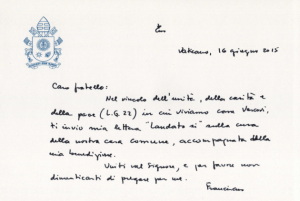 Vaticano, 16 giugno 2015
Caro fratello:
Nel vincolo dell'unità, della carità e
della pace (L.G. 22) in cui viviamo come Vescovi,
ti invio mia lettera "Laudato si'" sulla cura
della nostra casa comune, accompagnata dalla
mia benedizione.
Uniti nel Signore, e per favore non
dimenticarti di pregare per me.
Franciscus